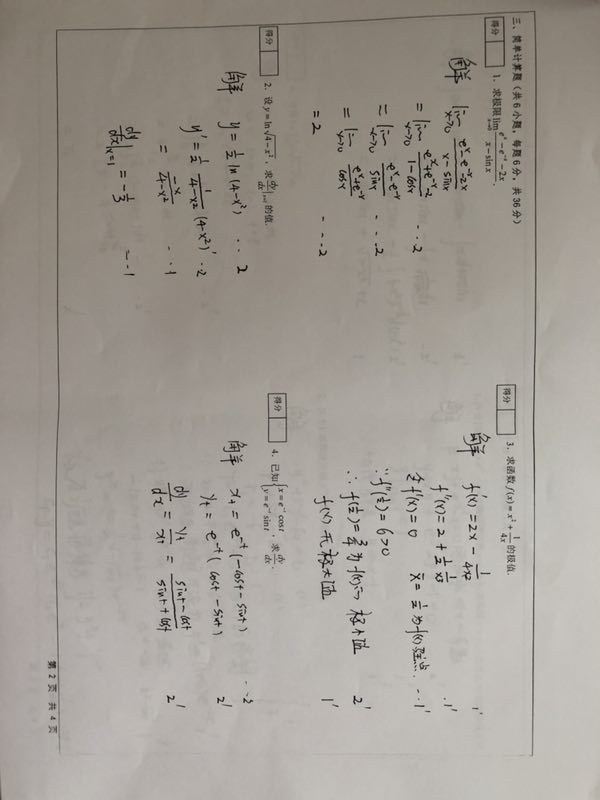 三、简单计算题（共 6 小题，每题 6 分，共 36 分）
得分
1．求极限 lim_{x→0} (e^x − e^{-x} − 2x)/(x − sin x).
解 lim_{x→0} (e^x − e^{-x} − 2x)/(x − sinx)
= lim_{x→0} (e^x + e^{-x} − 2)/(1 − cosx) ---2
= lim_{x→0} (e^x − e^{-x})/sinx ---2
= lim_{x→0} (e^x + e^{-x})/cosx
= 2 ---2
得分
2．设 y = ln√(4 − x²)，求 dy/dx|_{x=1} 的值.
解 y = 1/2 ln(4 − x²) --- 2
y' = 1/2 1/(4 − x²) (4 − x²)' --2
= −x/(4 − x²) ---1
dy/dx|_{x=1} = −1/3 ---1
得分
3．求函数 f(x) = x² + 1/(4x) 的极值.
解 f'(x) = 2x − 1/(4x²) 1'
f''(x) = 2 + 1/2 1/x³ 1'
令 f'(x) = 0 x̄ = 1/2 为 f(x) 驻点. --1'
∵ f''(1/2) = 6 > 0
∴ f(1/2) = 3/4 为 f(x) 的 极小值 2'
f(x) 无极大值 1'
得分
4．已知 {x = e^{-t} cos t, y = e^{-t} sin t，求 dy/dx.
解 x_t = e^{-t} (−cost − sint) --2
y_t = e^{-t} (cost − sint) 2'
dy/dx = y_t/x_t = (sint − cost)/(sint + cost) 2'
第 2 页 共 4 页